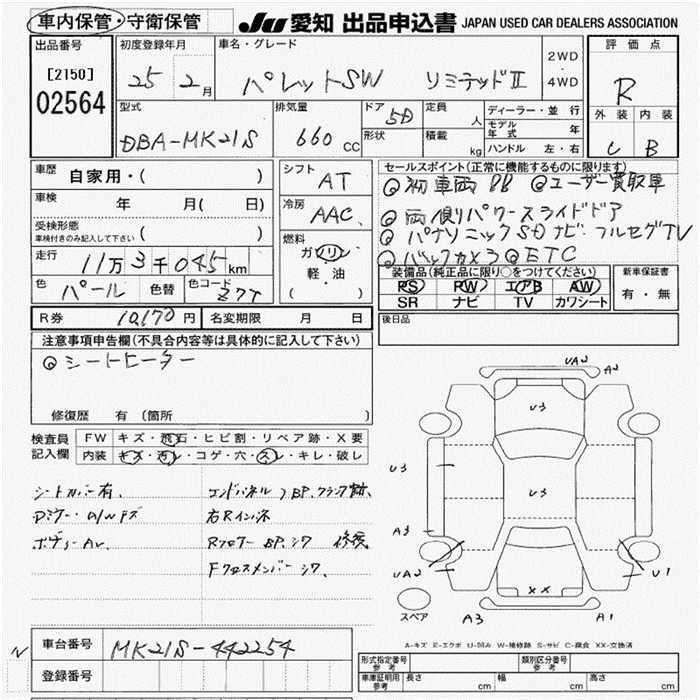 車内保管・守衛保管 JU 愛知 出品申込書 JAPAN USED CAR DEALERS ASSOCIATION
出品番号 初度登録年月 車名・グレード 2WD・4WD 評価点
[2150] 25 2月 パレットSW リミテッドⅡ R
02564
型式 排気量 ドア 5D 定員 人 ディーラー・並行 外装 内装
DBA-MK21S 660cc 形状 積載 kg モデル年式 年 C B
ハンドル 左・右
車歴 自家用・( ) シフト AT セールスポイント(正常に機能するものに限ります)
◎初車両BB ◎ユーザー買取車
車検 年 月( 日) 冷房 AAC
◎両側パワースライドドア
受検形態 ( )
車検付きのみ記入して下さい
燃料 ガソリン
◎パナソニックSDナビ・フルセグTV
走行 11万3千045km 軽・油 ◎バックカメラ◎ETC
色 パール 色替 色コード Z7T ( )
装備品(純正品に限り○をつけてください) 新車保証書
PS PW エアB AW 有・無
SR ナビ TV カワシート
R券 10170円 名変期限 月 日 後日品
注意事項申告欄(不具合内容等は具体的に記入して下さい)
◎シートヒーター
修復歴 有 (箇所
検査員記入欄 FW キズ・飛石・ヒビ割・リペア跡・X要
内装 キズ・汚レ・コゲ・穴・スレ・キレ・破レ
シートカバー有、 エンドパネルJBP、クランプ跡、
Dミラー・
ボディーAU、 RフロアーBP、シワ 修復
Fクロスメンバーシワ、
UA2 A2
U3
U3 U3
A3
UA2 U1
XX
スペア A3 A1
A-キズ E-エクボ U-凹み W-補修跡 S-サビ C-腐食 XX-交換済
N 車台番号 MK21S-442254
登録番号
形式指定番号 参考 類別区分番号 参考
車庫証明用 参考 長さ cm 幅 cm 高さ cm